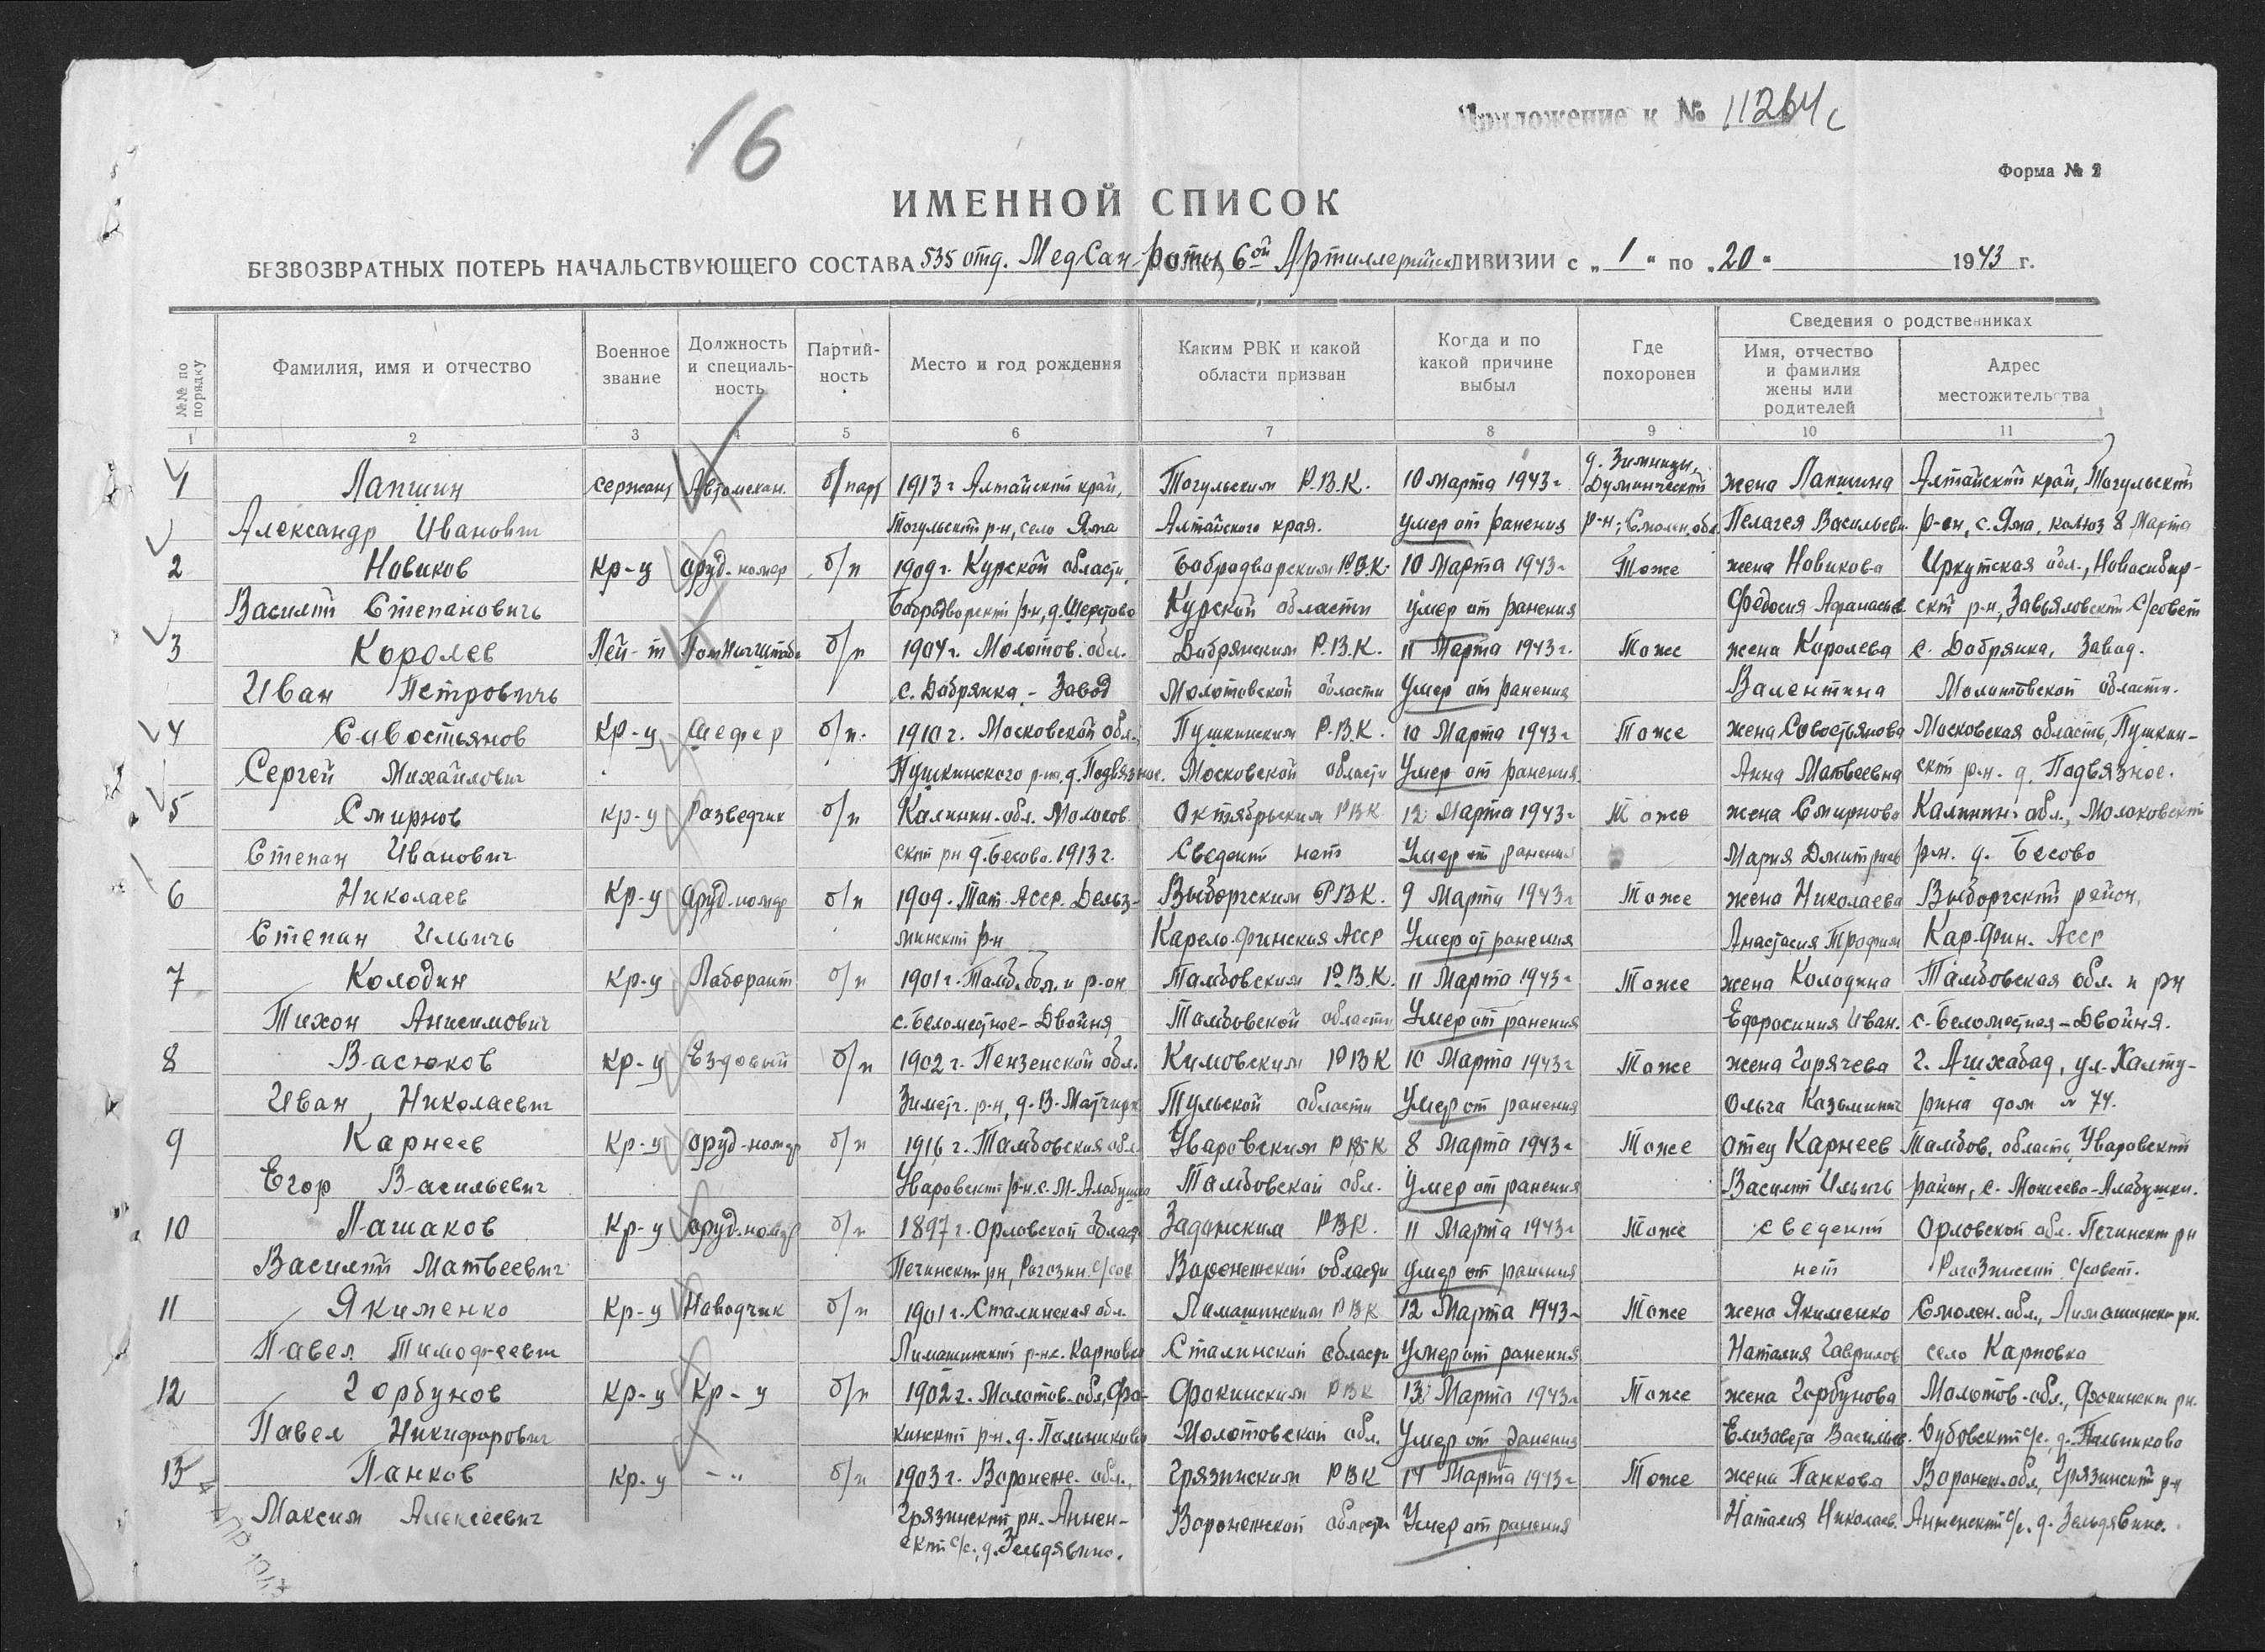 16
Приложение к № 11264с
Форма № 2
ИМЕННОЙ СПИСОК
БЕЗВОЗВРАТНЫХ ПОТЕРЬ НАЧАЛЬСТВУЮЩЕГО СОСТАВА 535 отд. МедСан-роты, 6ой Артиллерийск ДИВИЗИИ с „ 1 “ по „ 20 “ 1943 г.
№№ по порядку
Фамилия, имя и отчество
Военное звание
Должность и специаль-ность
Партий-ность
Место и год рождения
Каким РВК и какой области призван
Когда и по какой причине выбыл
Где похоронен
Сведения о родственниках
Имя, отчество и фамилия жены или родителей
Адрес местожительства
1 2 3 4 5 6 7 8 9 10 11
д. Зимницы,
1 Лапшин сержант Автомехан. б/парт 1913 г Алтайский край, Тогульским Р.В.К. 10 Марта 1943 г Думинический жена Лапшина Алтайский край, Тогульский
Александр Иванович Тогульский р-н, село Яма Алтайского края. умер от ранения р-н, Смолен. обл. Пелагея Васильевн. р-он, с. Яма, колхоз 8 Марта
2 Новиков Кр-ц оруд-номер б/п 1909 г. Курской области, Бобродворским Р.В.К. 10 Марта 1943 г Тоже жена Новикова Иркутская обл., Новосибир-
Василий Степановичь Бобродворский р-н, д. Шерстово Курской области умер от ранения Федосия Афанасьев ский р-н, Завьяловский С/совет
3 Королев Лей-т ПомНачШтаба б/п 1904 г. Молотов. обл. Добрянским Р.В.К. 11 Марта 1943 г. Тоже жена Королева с. Добрянка, Завод.
Иван Петровичь с. Добрянка - Завод Молотовской области Умер от ранения Валентина Молотовской области.
4 Сивостьянов Кр-ц Шофер б/п. 1910 г. Московской обл., Пушкинским Р.В.К. 10 Марта 1943 г Тоже жена Совостьянова Московская область, Пушкин-
Сергей Михайлович Пушкинского р-на, д. Подвязное. Московской области Умер от ранения Анна Матвеевна ский р-н. д. Подвязное.
5 Смирнов кр-ц Разведчик б/п Калинин. обл. Молоков- Октябрьским РВК 12 Марта 1943 г Тоже жена Смирнова Калинин. обл., Молоковский
Степан Иванович ский рн д. Бесово. 1913 г. Сведений нет Умер от ранения Мария Дмитриев р-н. д. Бесово
6 Николаев Кр-ц Оруд-номер б/п 1909. Тат. Асср. Выборгским РВК. 9 Марта 1943 г Тоже жена Николаева Выборгский район,
Степан Ильичь р-н Карело-Финская Асср Умер от ранения Анастасия Трофим Кар. Фин. Асср
7 Колодин кр-ц Лаборант б/п 1901 г. Тамб. обл. и р-он Тамбовским Р.В.К. 11 Марта 1943 г Тоже жена Колодина Тамбовская обл. и рн
Тихон Анисимович с. Беломестное-Двойня Тамбовской области Умер от ранения Ефросиния Иван. с. Беломестная-Двойня.
8 Васюков кр-ц Ездовый б/п 1902 г. Пензенской обл. Кимовским РВК 10 Марта 1943 г Тоже жена Горячева г. Ашхабад, ул. Халту-
Иван Николаевич Земетч. р-н, д. В-Матчерка Тульской области Умер от ранения Ольга Казьминич рина дом № 74.
9 Карнеев Кр-ц оруд-номер б/п 1916 г. Тамбовская обл. Уваровским РВК 8 Марта 1943 г Тоже отец Карнеев Тамбов. область, Уваровский
Егор Васильевич Уваровский р-н. с. М-Алабушка Тамбовской обл. Умер от ранения Василий Ильичь район, с. Моисеево-Алабушки.
10 Лашаков Кр-ц оруд-номер б/п 1897 г. Орловской област Задонским РВК. 11 Марта 1943 г Тоже сведений Орловской обл. рн
Василий Матвеевич рн, Рогозин. с/сов Воронежской области Умер от ранения нет Рогозинский с/совет.
11 Якименко Кр-ц Наводчик б/п 1901 г. Сталинская обл. Лиманским РВК 12 Марта 1943 г Тоже жена Якименко Смолен. обл., рн.
Павел Тимофеевич р-н с. Карповка Сталинской области Умер от ранения Наталия Гаврилов село Карповка
12 Горбунов Кр-ц Кр-ц б/п 1902 г. Молотов. обл, Фо- Фокинским РВК 13 Марта 1943 г Тоже жена Горбунова Молотов. обл., Фокинский рн.
Павел Никифорович кинский р-н. д. Пальникова Молотовской обл. Умер от ранения Елизавета Васильев. Дубовский с/с., д. Пальниково
13 Панков Кр-ц -"- б/п 1903 г. Воронеж. обл., Грязинским РВК 14 Марта 1943 г Тоже жена Панкова Воронеж. обл, Грязинский р-н
Максим Алексеевич Грязинский рн. Аннен- Воронежской области Умер от ранения Наталия Николаев. Анненский с/с. д. Зельдявино.
ский с/с., д. Зельдявино.
4 АПР 1943